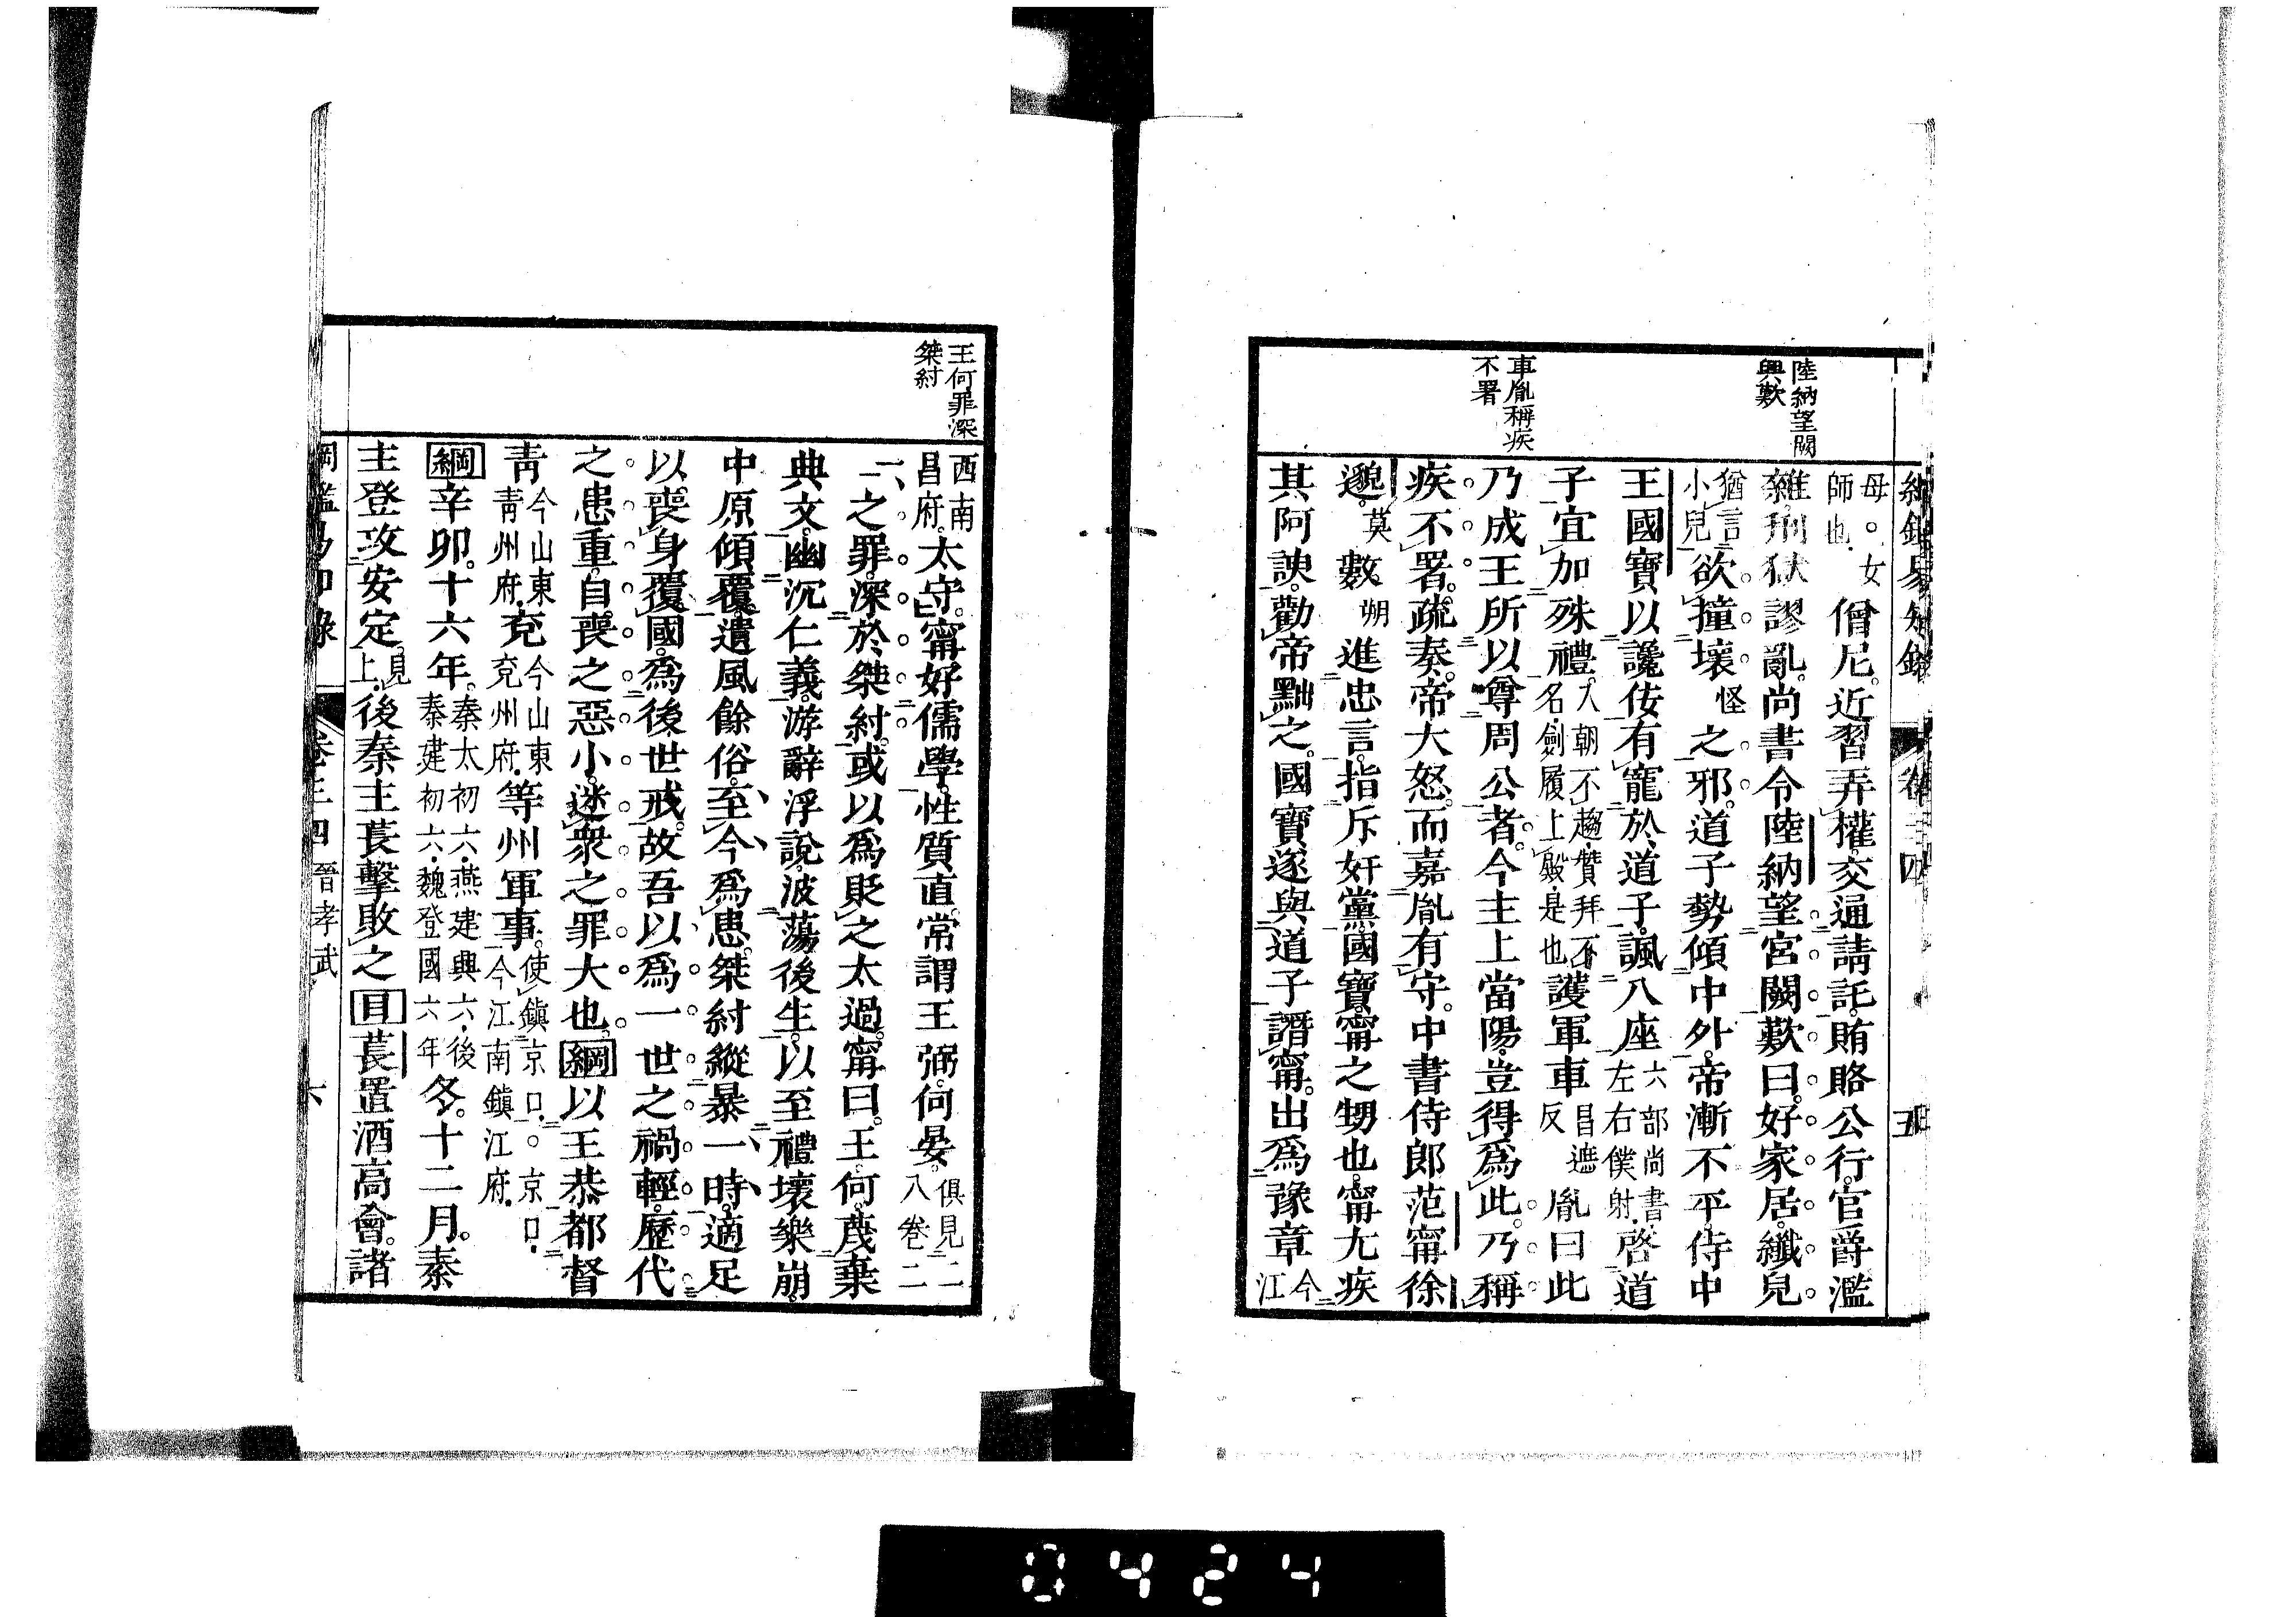 綱鑑易知錄 卷三四 五
陸納望闕
興歎
車胤稱疾
不署
母。女師也。僧尼。近習弄權。交通請託。賄賂公行。官爵濫
雜。刑獄謬亂。尚書令陸納望宮闕歎曰。好家居。纖兒
猶言小兒欲撞壞怪之邪。道子勢傾中外。帝漸不平。侍中
王國寶以讒佞有寵於道子。諷八座六部尚書左右僕射。啓道
子宜加殊禮。入朝不趨。贊拜不名。劍履上殿。是也護軍車昌遮反胤曰。此
乃成王所以尊周公者。今主上當陽。豈得爲此。乃稱
疾不署。疏奏。帝大怒。而嘉胤有守。中書侍郎范甯徐
邈莫數朔進忠言。指斥奸黨。國寶。甯之甥也。甯尤疾
其阿諛。勸帝黜之。國寶遂與道子譖甯。出爲豫章今江
王何罪深
桀紂
西南昌府。太守。甯好儒學。性質直。常謂王弼。何晏。俱見二八卷二
一、之罪。深於桀紂。或以爲貶之太過。甯曰。王何。蔑棄
典文。幽沉仁義。游辭浮說。波蕩後生。以至禮壞樂崩。
中原傾覆。遺風餘俗。至今爲患。桀紂縱暴一時。適足
以喪身覆國。爲後世戒。故吾以爲一世之禍輕。歷代
之患重。自喪之惡小。迷衆之罪大也。綱以王恭都督
青今山東青州府。兗今山東兗州府。等州軍事。使鎮京口。。京口。今江南鎮江府。
綱辛卯。十六年。秦太初六。燕建興六。後秦建初六。魏登國六年冬。十二月。秦
主登攻安定。見上。後秦主萇擊敗之目萇置酒高會。諸
綱鑑易知錄 卷三四 晉孝武 六
0424